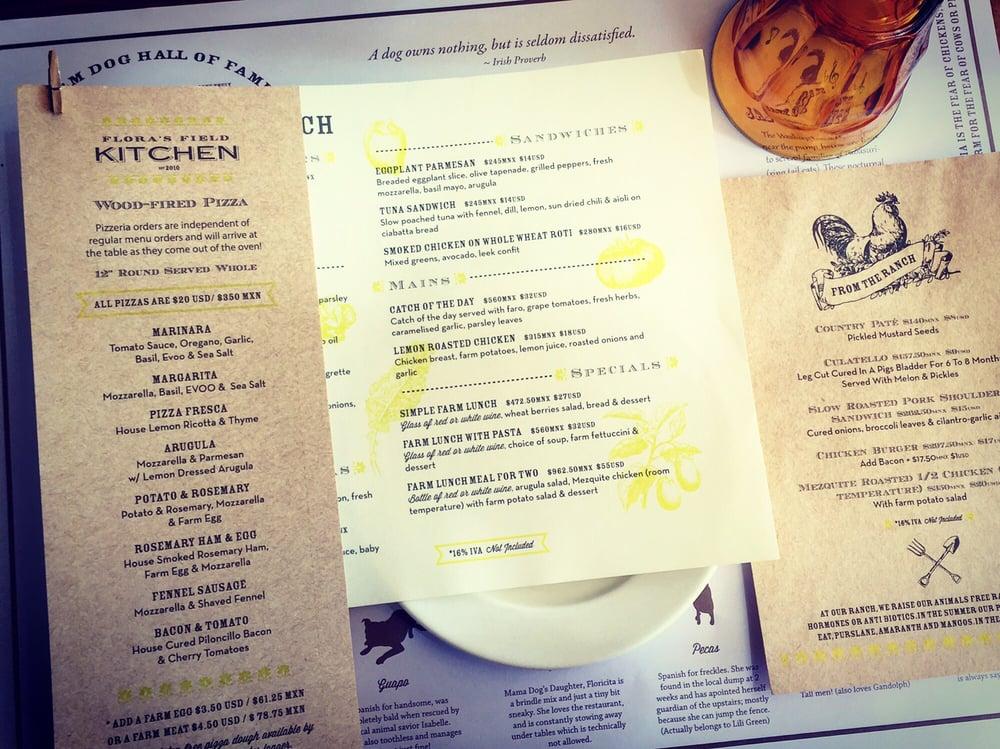 M DOG HALL OF FAM
A dog owns nothing, but is seldom dissatisfied.
~ Irish Proverb
FLORA'S FIELD
KITCHEN
EST 2010
WOOD-FIRED PIZZA
Pizzeria orders are independent of
regular menu orders and will arrive at
the table as they come out of the oven!
12" ROUND SERVED WHOLE
ALL PIZZAS ARE $20 USD/ $350 MXN
MARINARA
Tomato Sauce, Oregano, Garlic,
Basil, Evoo & Sea Salt
MARGARITA
Mozzarella, Basil, EVOO & Sea Salt
PIZZA FRESCA
House Lemon Ricotta & Thyme
ARUGULA
Mozzarella & Parmesan
w/ Lemon Dressed Arugula
POTATO & ROSEMARY
Potato & Rosemary, Mozzarella
& Farm Egg
ROSEMARY HAM & EGG
House Smoked Rosemary Ham,
Farm Egg & Mozzarella
FENNEL SAUSAGE
Mozzarella & Shaved Fennel
BACON & TOMATO
House Cured Piloncillo Bacon
& Cherry Tomatoes
* ADD A FARM EGG $3.50 USD / $61.25 MXN
OR A FARM MEAT $4.50 USD / $ 78.75 MXN
free pizza dough available by
CH
S
parsley
oil
grette
onions,
S
on, fresh
ce, baby
SANDWICHES
EGGPLANT PARMESAN $245MNX $14USD
Breaded eggplant slice, olive tapenade, grilled peppers, fresh
mozzarella, basil mayo, arugula
TUNA SANDWICH $245MNX $14USD
Slow poached tuna with fennel, dill, lemon, sun dried chili & aioli on
ciabatta bread
SMOKED CHICKEN ON WHOLE WHEAT ROTI $280MNX $16USD
Mixed greens, avocado, leek confit
MAINS
CATCH OF THE DAY $560MNX $32USD
Catch of the day served with faro, grape tomatoes, fresh herbs,
caramelised garlic, parsley leaves
LEMON ROASTED CHICKEN $315MNX $18USD
Chicken breast, farm potatoes, lemon juice, roasted onions and
garlic
SPECIALS
SIMPLE FARM LUNCH $472.50MNX $27USD
Glass of red or white wine, wheat berries salad, bread & dessert
FARM LUNCH WITH PASTA $560MNX $32USD
Glass of red or white wine, choice of soup, farm fettuccini &
dessert
FARM LUNCH MEAL FOR TWO $962.50MNX $55USD
Bottle of red or white wine, arugula salad, Mezquite chicken (room
temperature) with farm potato salad & dessert
*16% IVA Not Included
FROM THE RANCH
COUNTRY PATÉ $140MNX $8USD
Pickled Mustard Seeds
CULATELLO $157.50MNX $9USD
Leg Cut Cured In A Pigs Bladder For 6 To 8 Month
Served With Melon & Pickles
SLOW ROASTED PORK SHOULDER
SANDWICH $262.50MNX $15USD
Cured onions, broccoli leaves & cilantro-garlic a
CHICKEN BURGER $297.50MNX $17
Add Bacon + $17.50MNX $1USD
MEZQUITE ROASTED 1/2 CHICKEN
TEMPERATURE) $350MNX $20
With farm potato salad
*16% IVA Not Included
AT OUR RANCH, WE RAISE OUR ANIMALS FREE RA
HORMONES OR ANTI BIOTICS. IN THE SUMMER OUR P
EAT, PURSLANE, AMARANTH AND MANGOS. IN THE
IA IS THE FEAR OF CHICKENS.
RM FOR THE FEAR OF COWS OR
Guapo
panish for handsome, was
letely bald when rescued by
al animal savior Isabelle.
also toothless and manages
just fine!
Mama Dog's Daughter, Floricita is
a brindle mix and just a tiny bit
sneaky. She loves the restaurant,
and is constantly stowing away
under tables which is technically
not allowed.
Pecas
Spanish for freckles. She was
found in the local dump at 2
weeks and has apointed herself
guardian of the upstairs; mostly
because she can jump the fence.
(Actually belongs to Lili Green)
Tall men! (also loves Gandolph)
is always